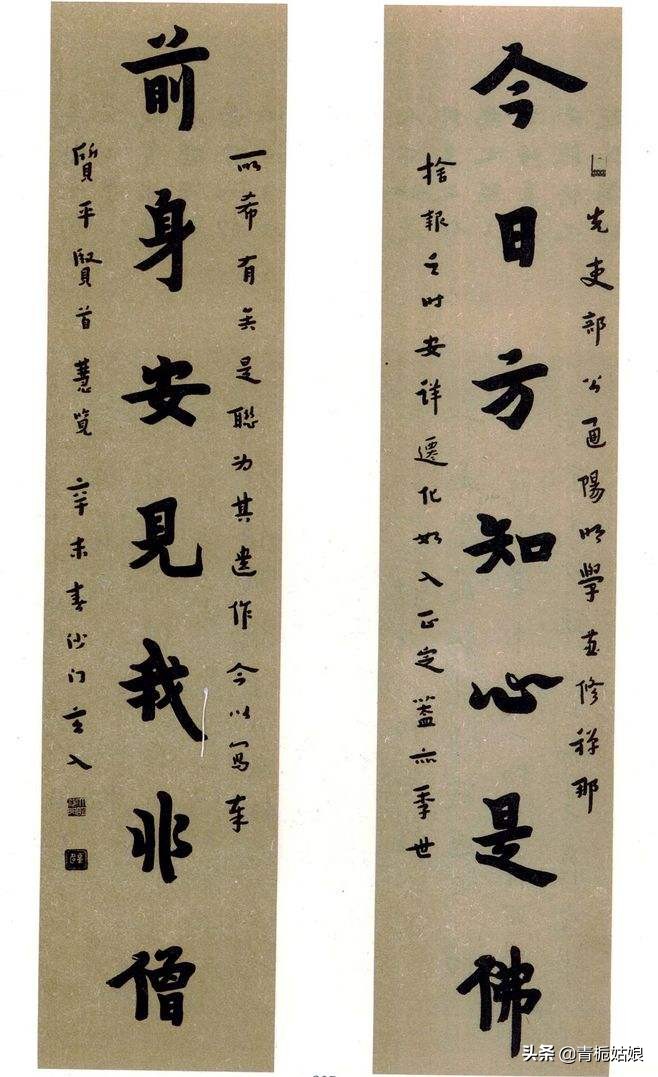 今日方知心是佛
先吏部公通陽明學兼修禪那
捨報之时安詳遷化如入正定蓋亦季世
前身安見我非僧
所希有矣是聯为其遺作今以寫奉
質平賢首慧覽 辛未春沙门玄入
头条 @青栀姑娘